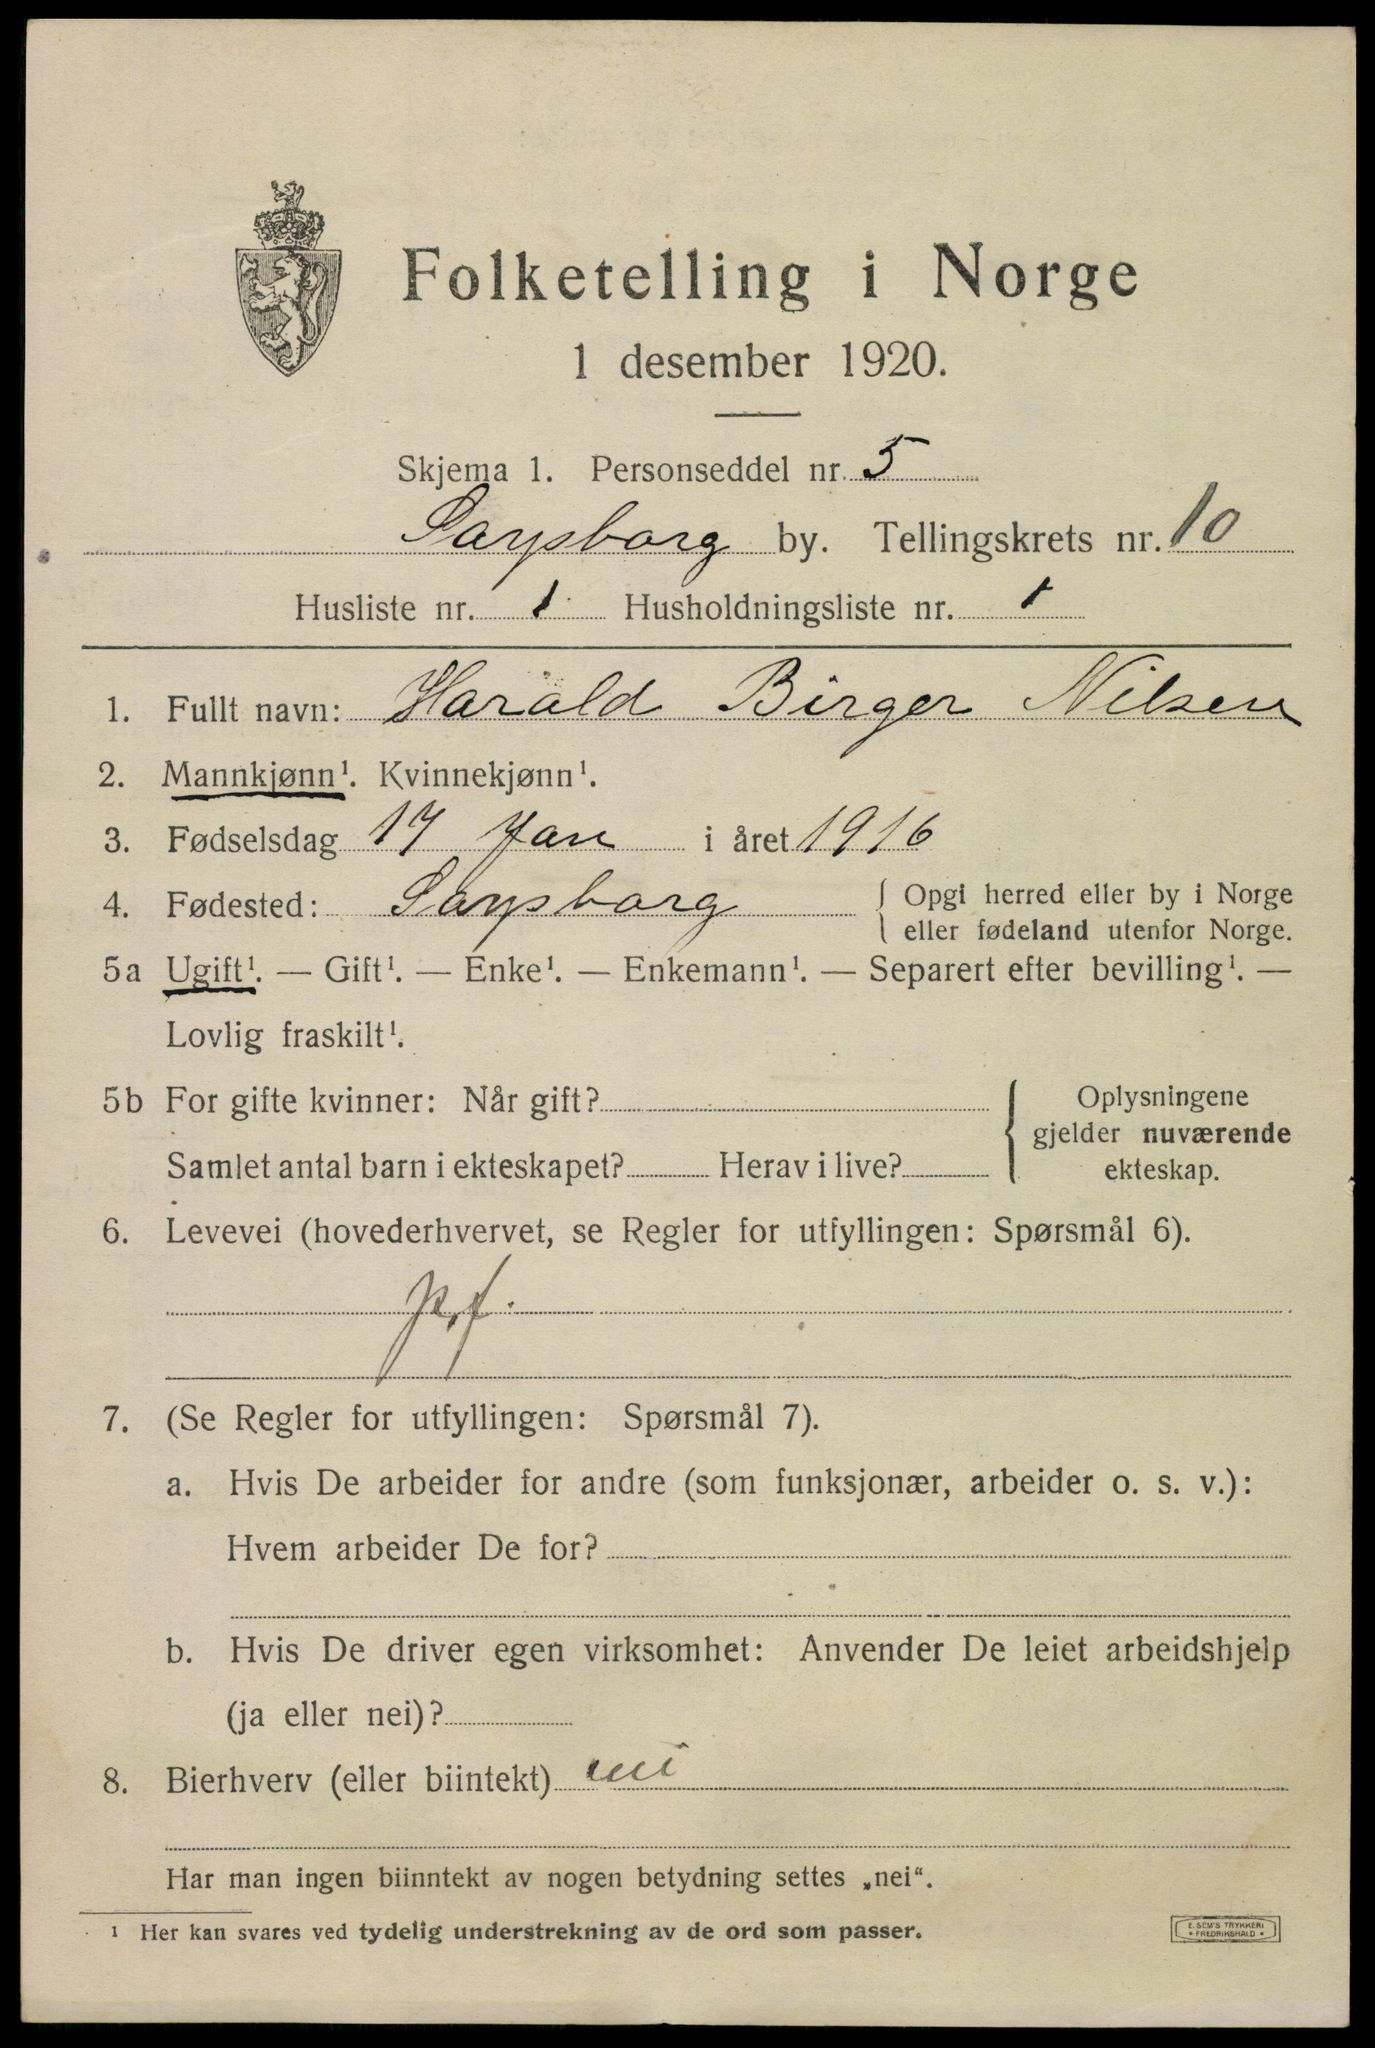 Folketelling i Norge
1 desember 1920.
Skjema 1. Personseddel nr. 5
Sarpsborg by. Tellingskrets nr. 10
Husliste nr. 1 Husholdningsliste nr. 1
1. Fullt navn: Harald Birger Nilsen
2. Mannkjønn¹. Kvinnekjønn¹.
3. Fødselsdag 17 Jan i året 1916
4. Fødested: Sarpsborg { Opgi herred eller by i Norge
eller fødeland utenfor Norge.
5a Ugift¹. — Gift¹. — Enke¹. — Enkemann¹. — Separert efter bevilling¹. —
Lovlig fraskilt¹.
5b For gifte kvinner: Når gift?
Samlet antal barn i ekteskapet? Herav i live?
{ Oplysningene
gjelder nuværende
ekteskap.
6. Levevei (hovederhvervet, se Regler for utfyllingen: Spørsmål 6).
p.f.
7. (Se Regler for utfyllingen: Spørsmål 7).
a. Hvis De arbeider for andre (som funksjonær, arbeider o. s. v.):
Hvem arbeider De for?
b. Hvis De driver egen virksomhet: Anvender De leiet arbeidshjelp
(ja eller nei)?
8. Bierhverv (eller biintekt) nei
Har man ingen biinntekt av nogen betydning settes „nei“.
¹ Her kan svares ved tydelig understrekning av de ord som passer.
E. SEM'S TRYKKERI
• FREDRIKSHALD •